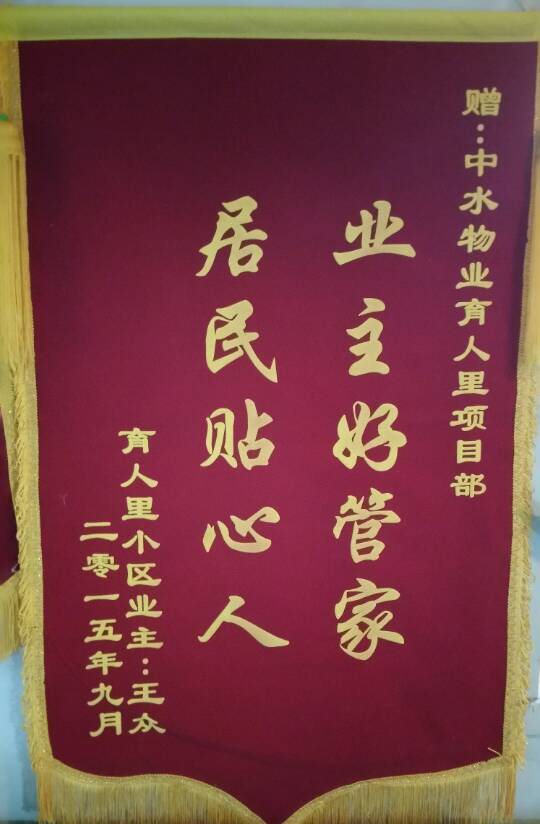 赠：中水物业育人里项目部
业主好管家
居民贴心人
育人里小区业主：王众
二零一五年九月